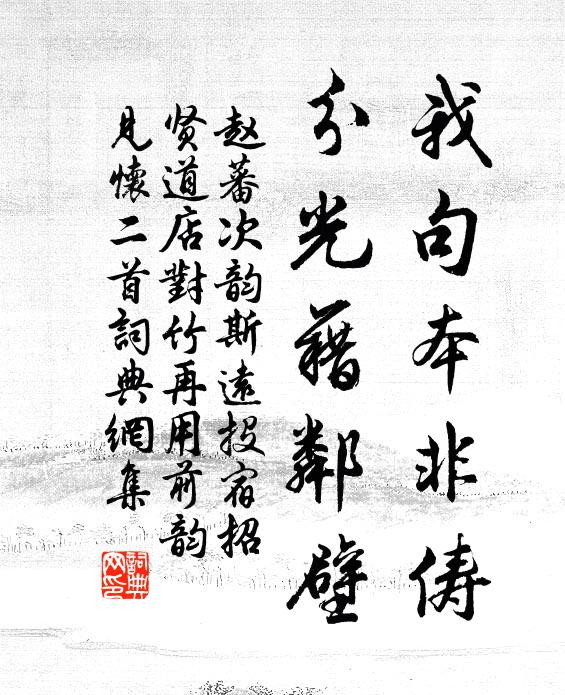 我句本非俦
分光藉鄰壁
赵蕃次韵斯遠投宿招
贤道店對竹再用前韵
見懷二首詞典網集
詞典网印